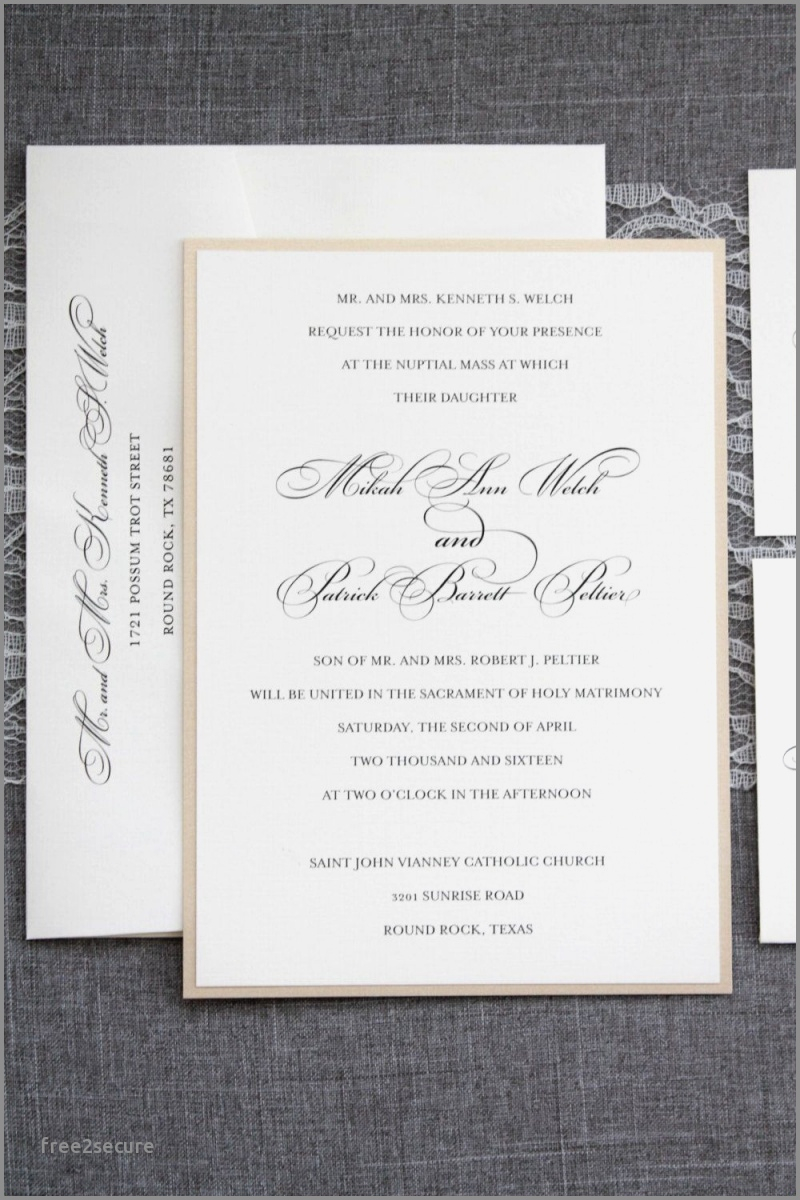 Mr. and Mrs. Kenneth S. Welch
1721 POSSUM TROT STREET
ROUND ROCK, TX 78681
MR. AND MRS. KENNETH S. WELCH
REQUEST THE HONOR OF YOUR PRESENCE
AT THE NUPTIAL MASS AT WHICH
THEIR DAUGHTER
Mikah Ann Welch
and
Patrick Barrett Peltier
SON OF MR. AND MRS. ROBERT J. PELTIER
WILL BE UNITED IN THE SACRAMENT OF HOLY MATRIMONY
SATURDAY, THE SECOND OF APRIL
TWO THOUSAND AND SIXTEEN
AT TWO O'CLOCK IN THE AFTERNOON
SAINT JOHN VIANNEY CATHOLIC CHURCH
3201 SUNRISE ROAD
ROUND ROCK, TEXAS
free2secure